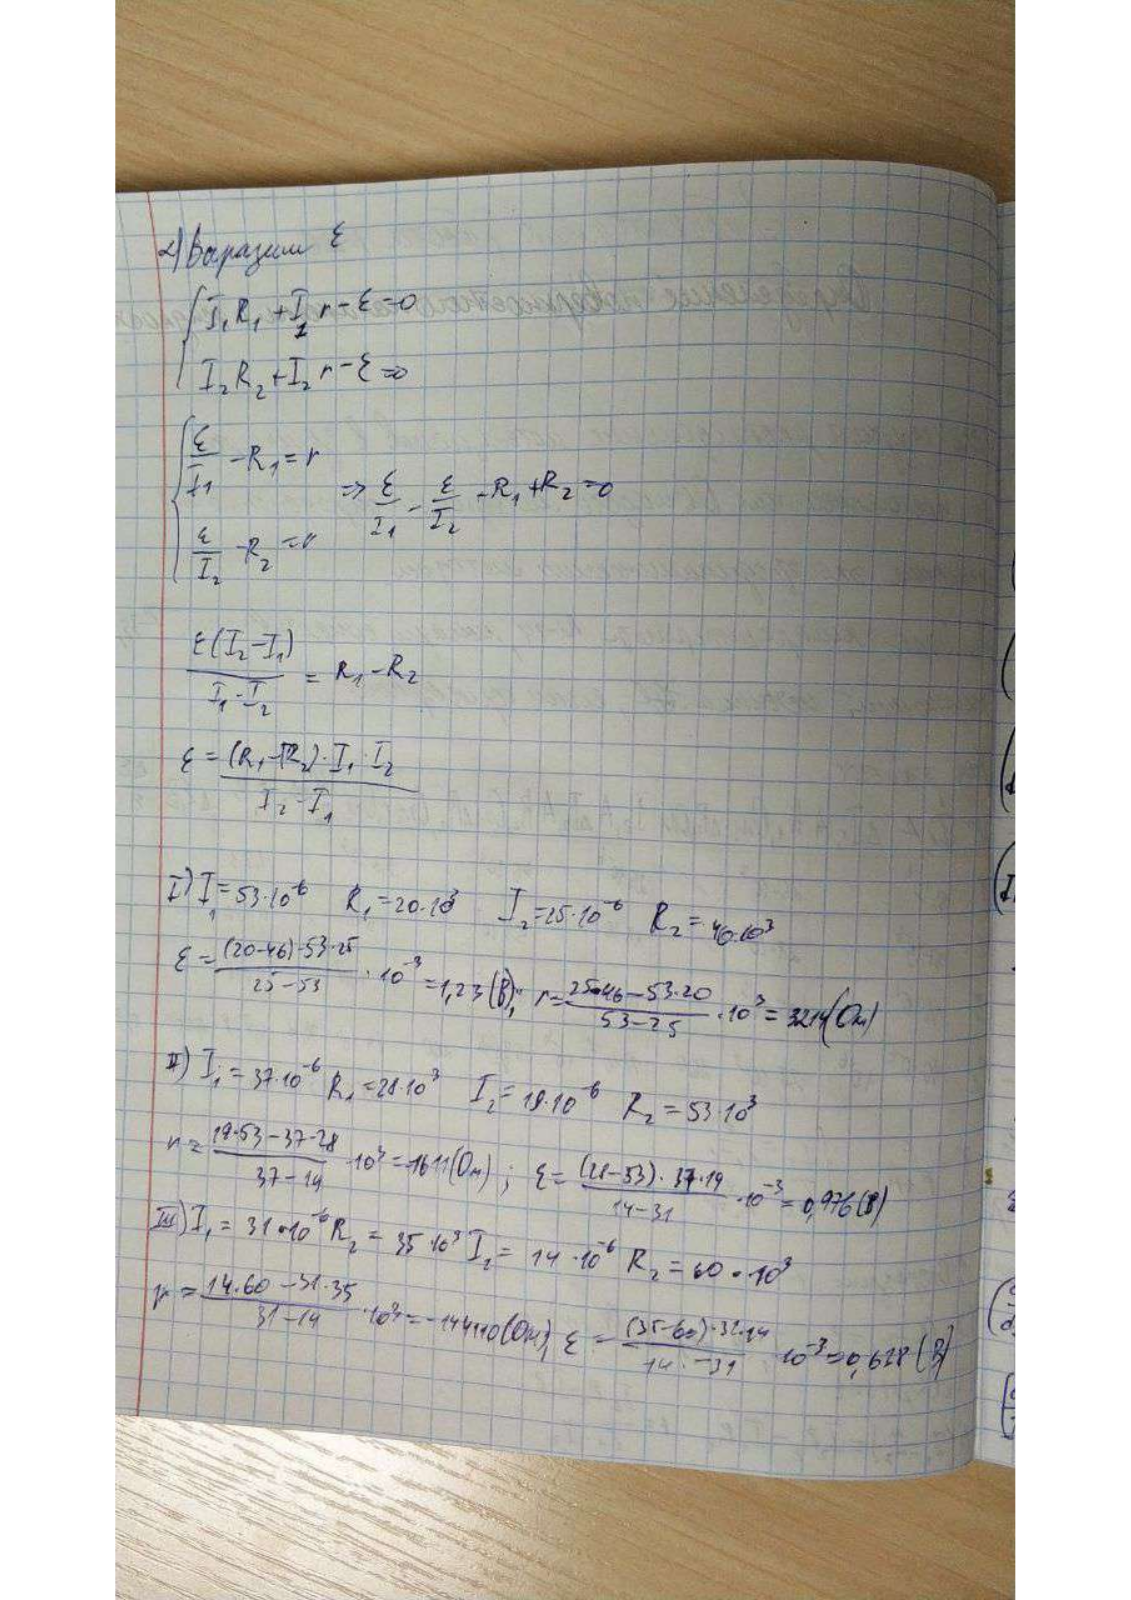 2) Выразим ε
I₁R₁ + I₁r - ε = 0
I₂R₂ + I₂r - ε = 0
ε/I₁ - R₁ = r
⇒ ε/I₁ - ε/I₂ - R₁ + R₂ = 0
ε/I₂ - R₂ = r
ε(I₂ - I₁)/(I₁·I₂) = R₁ - R₂
ε = (R₁ - R₂)·I₁·I₂/(I₂ - I₁)
I) I₁ = 53·10⁻⁶ R₁ = 20·10³ I₂ = 25·10⁻⁶ R₂ = 46·10³
ε = (20-46)·53·25/(25-53) · 10⁻³ = 1,23 (В); r = (25·46-53·20)/(53-25) · 10³ = 3214 (Ом)
II) I₁ = 37·10⁻⁶ R₁ = 28·10³ I₂ = 19·10⁻⁶ R₂ = 53·10³
r = (19·53-37·28)/(37-19) · 10³ = -1611 (Ом); ε = (28-53)·37·19/(14-31) · 10⁻³ = 0,976 (В)
III) I₁ = 31·10⁻⁶ R₂ = 35·10³ I₂ = 14·10⁻⁶ R₂ = 60·10³
r = (14·60-31·35)/(31-14) · 10³ = (Ом), ε = (35-60)·14/(14-31) · 10⁻³ = 0,628 (В)